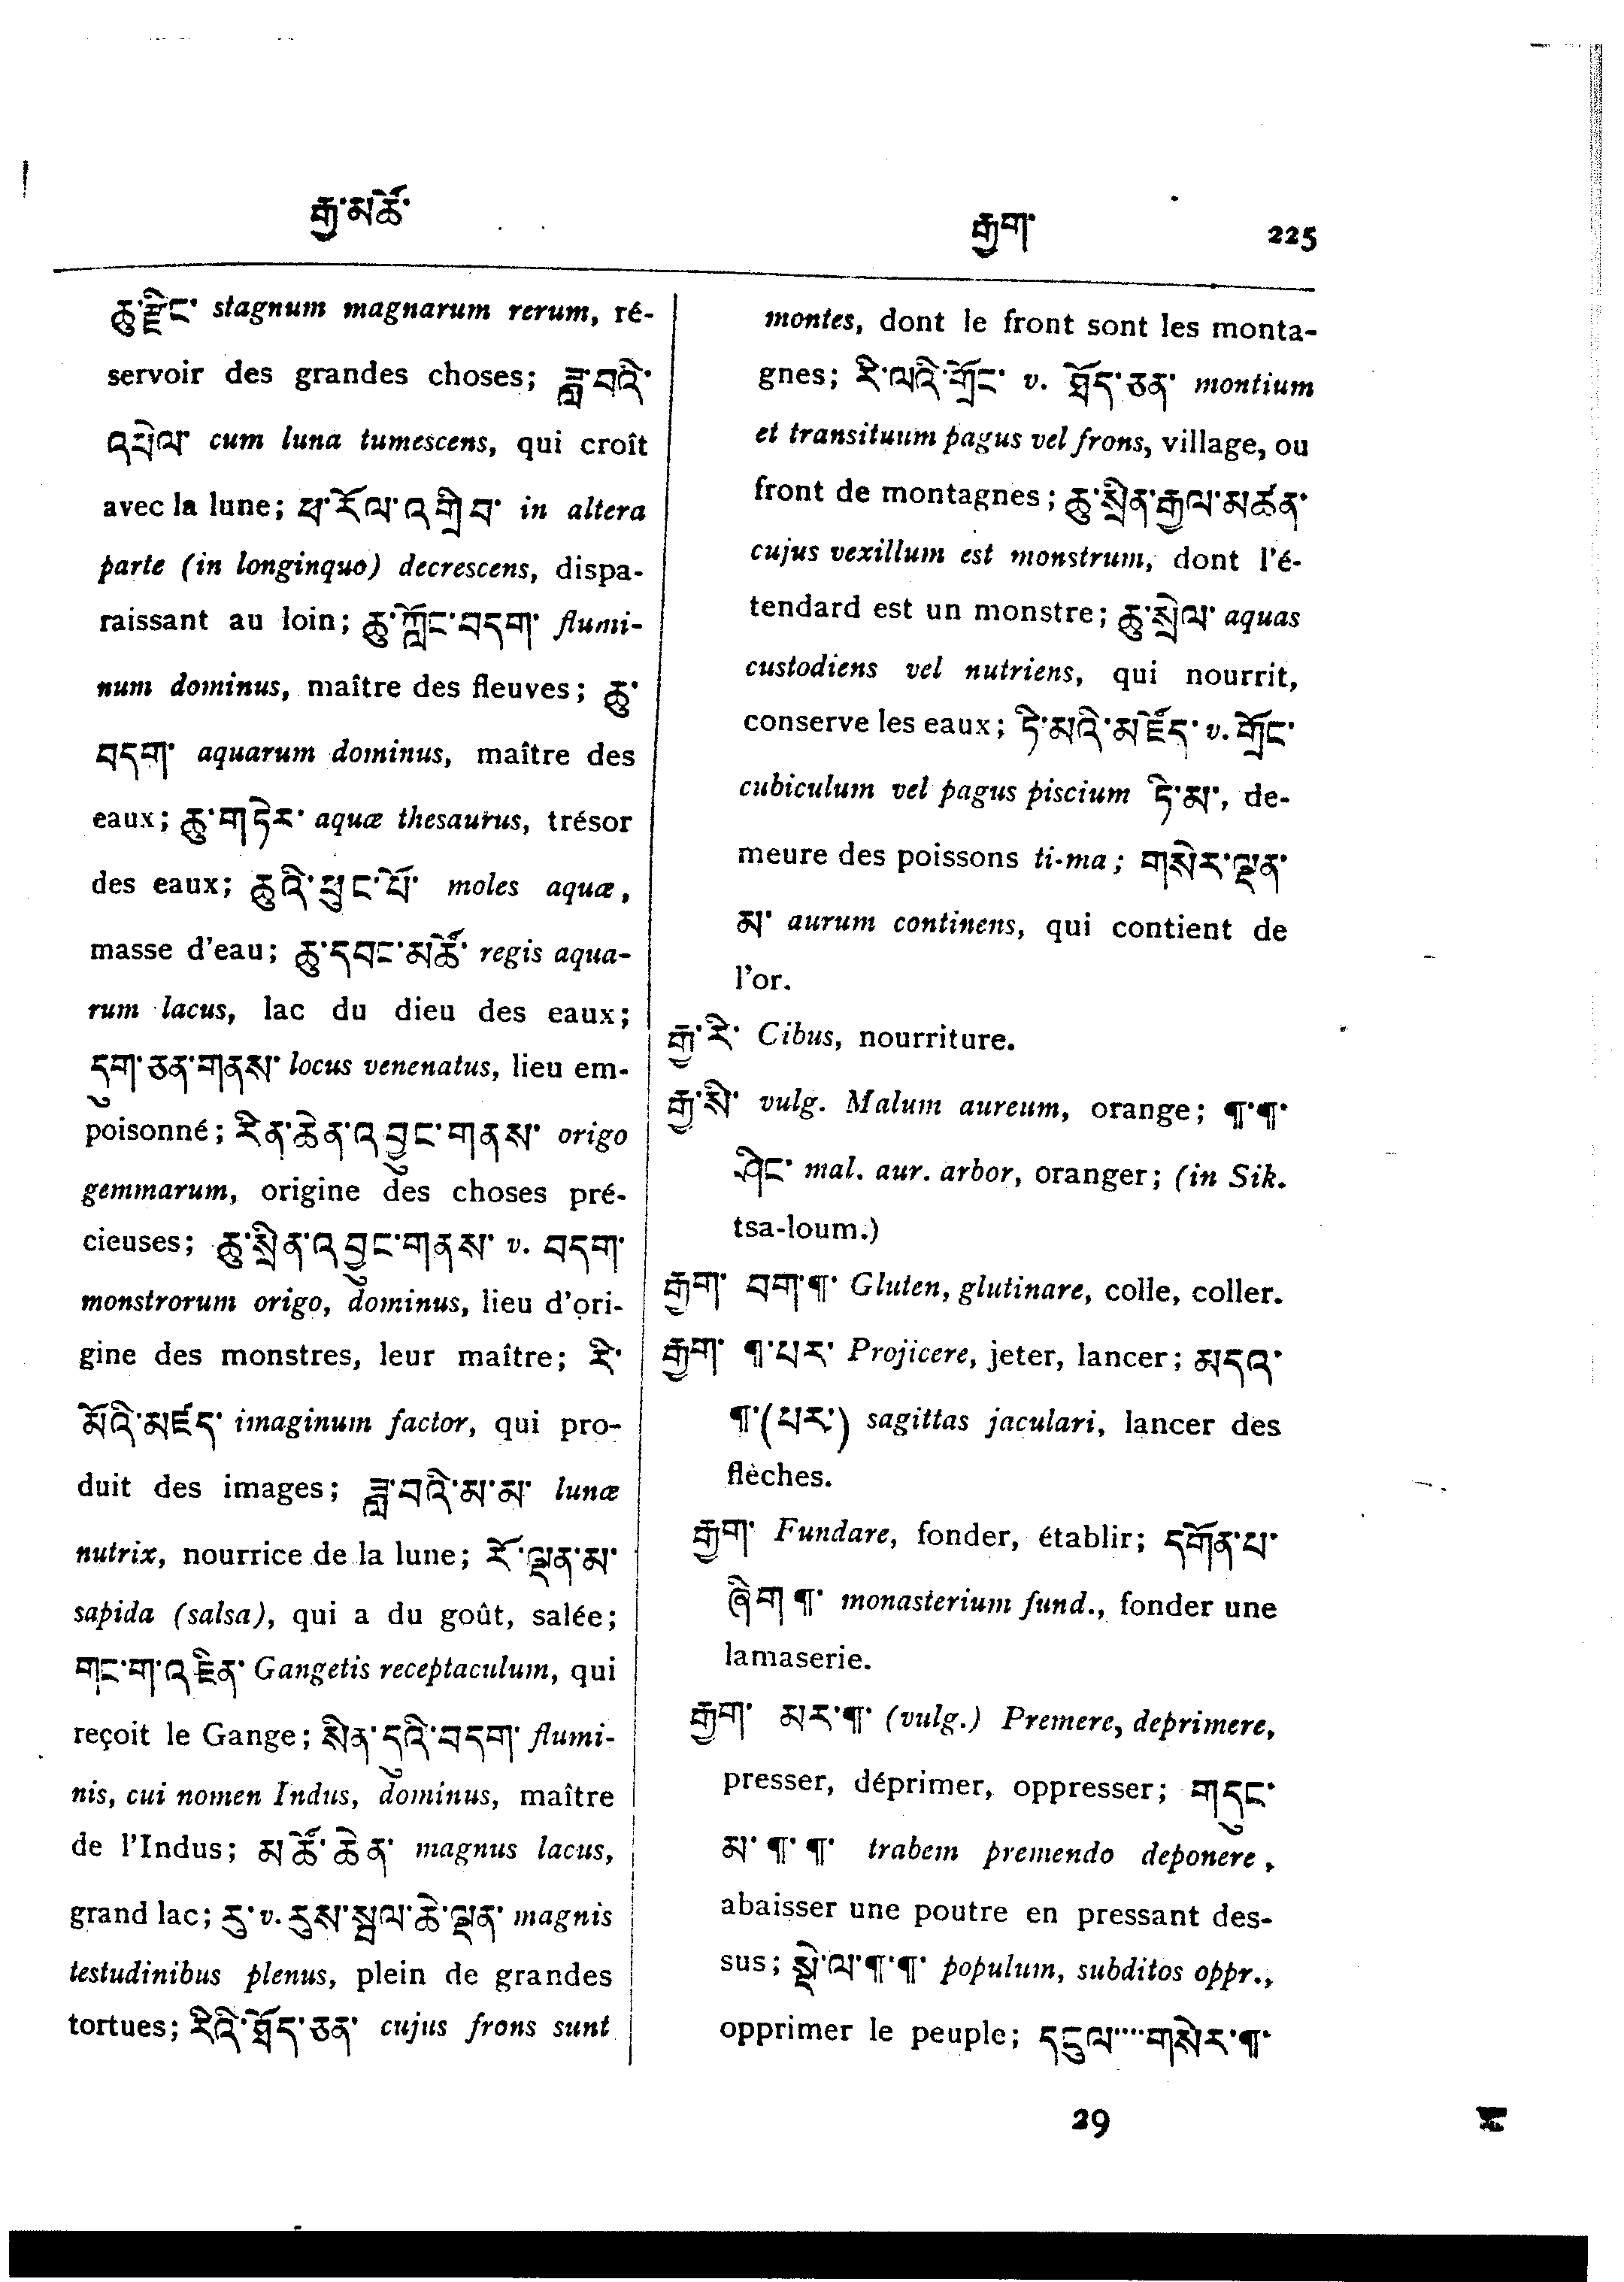 རྒྱ་མཚོ་
རྒྱག་ 225
ཆུ་རྫིང་ stagnum magnarum rerum, ré-
servoir des grandes choses; ཟླ་བའི་
འཕྲེལ་ cum luna tumescens, qui croît
avec la lune; ཕ་རོལ་འགྲིབ་ in altera
parte (in longinquo) decrescens, dispa-
raissant au loin; ཆུ་ཀློང་བདག་ flumi-
num dominus, maître des fleuves; ཆུ་
བདག་ aquarum dominus, maître des
eaux; ཆུ་གཏེར་ aquæ thesaurus, trésor
des eaux; ཆུའི་ཕུང་པོ་ moles aquæ,
masse d'eau; ཆུ་དབང་མཚོ་ regis aqua-
rum lacus, lac du dieu des eaux;
དུག་ཅན་གནས་ locus venenatus, lieu em-
poisonné; རིན་ཆེན་འབྱུང་གནས་ origo
gemmarum, origine des choses pré-
cieuses; ཆུ་སྲིན་འབྱུང་གནས་ v. བདག་
monstrorum origo, dominus, lieu d'ori-
gine des monstres, leur maître; རི་
མོའི་མཛད་ imaginum factor, qui pro-
duit des images; ཟླ་བའི་མ་མ་ lunæ
nutrix, nourrice de la lune; རོ་ལྡན་མ་
sapida (salsa), qui a du goût, salée;
གང་ག་འཛིན་ Gangetis receptaculum, qui
reçoit le Gange; སིན་དུའི་བདག་ flumi-
nis, cui nomen Indus, dominus, maître
de l'Indus; མཚོ་ཆེན་ magnus lacus,
grand lac; རུ་ v. རུས་སྦལ་ཆེ་ལྡན་ magnis
testudinibus plenus, plein de grandes
tortues; རིའི་ཐོད་ཅན་ cujus frons sunt
montes, dont le front sont les monta-
gnes; རི་ལའི་གྲོང་ v. ཐོད་ཅན་ montium
et transituum pagus vel frons, village, ou
front de montagnes; ཆུ་སྲིན་རྒྱལ་མཚན་
cujus vexillum est monstrum, dont l'é-
tendard est un monstre; ཆུ་སྲེལ་ aquas
custodiens vel nutriens, qui nourrit,
conserve les eaux; ཏི་མའི་མཛོད་ v. གྲོང་
cubiculum vel pagus piscium ཏི་མ་, de-
meure des poissons ti-ma; གསེར་ལྡན་
མ་ aurum continens, qui contient de
l'or.
རྒྱ་རི་ Cibus, nourriture.
རྒྱ་སི་ vulg. Malum aureum, orange; ¶་¶་
ཤིང་ mal. aur. arbor, oranger; (in Sik.
tsa-loum.)
རྒྱག་ བག་¶་ Gluten, glutinare, colle, coller.
རྒྱག་ ¶་པར་ Projicere, jeter, lancer; མདའ་
¶་(པར་) sagittas jaculari, lancer des
flèches.
རྒྱག་ Fundare, fonder, établir; དགོན་པ་
ཞིག་¶་ monasterium fund., fonder une
lamaserie.
རྒྱག་ མར་¶་ (vulg.) Premere, deprimere,
presser, déprimer, oppresser; གདུང་
མ་¶་¶་ trabem premendo deponere,
abaisser une poutre en pressant des-
sus; སྡེ་ལ་¶་¶་ populum, subditos oppr.,
opprimer le peuple; དངུལ་····གསེར་¶་
29